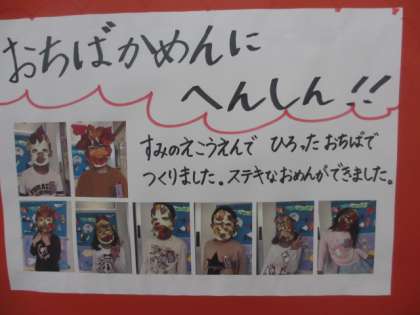 おちばかめんに
へんしん!!
すみのえこうえんで ひろった おちばで
つくりました。ステキなおめんができました。